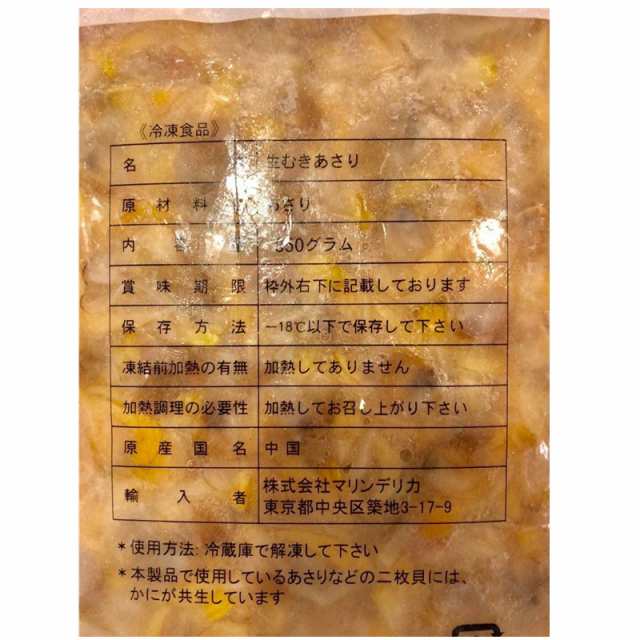 《冷凍食品》
名 生むきあさり
原材料 あさり
内容 グラム
賞味期限 枠外右下に記載しております
保存方法 −18℃以下で保存して下さい
凍結前加熱の有無 加熱してありません
加熱調理の必要性 加熱してお召し上がり下さい
原産国名 中国
輸入者 株式会社マリンデリカ
東京都中央区築地3-17-9
*使用方法:冷蔵庫で解凍して下さい
*本製品で使用しているあさりなどの二枚貝には、
かにが共生しています